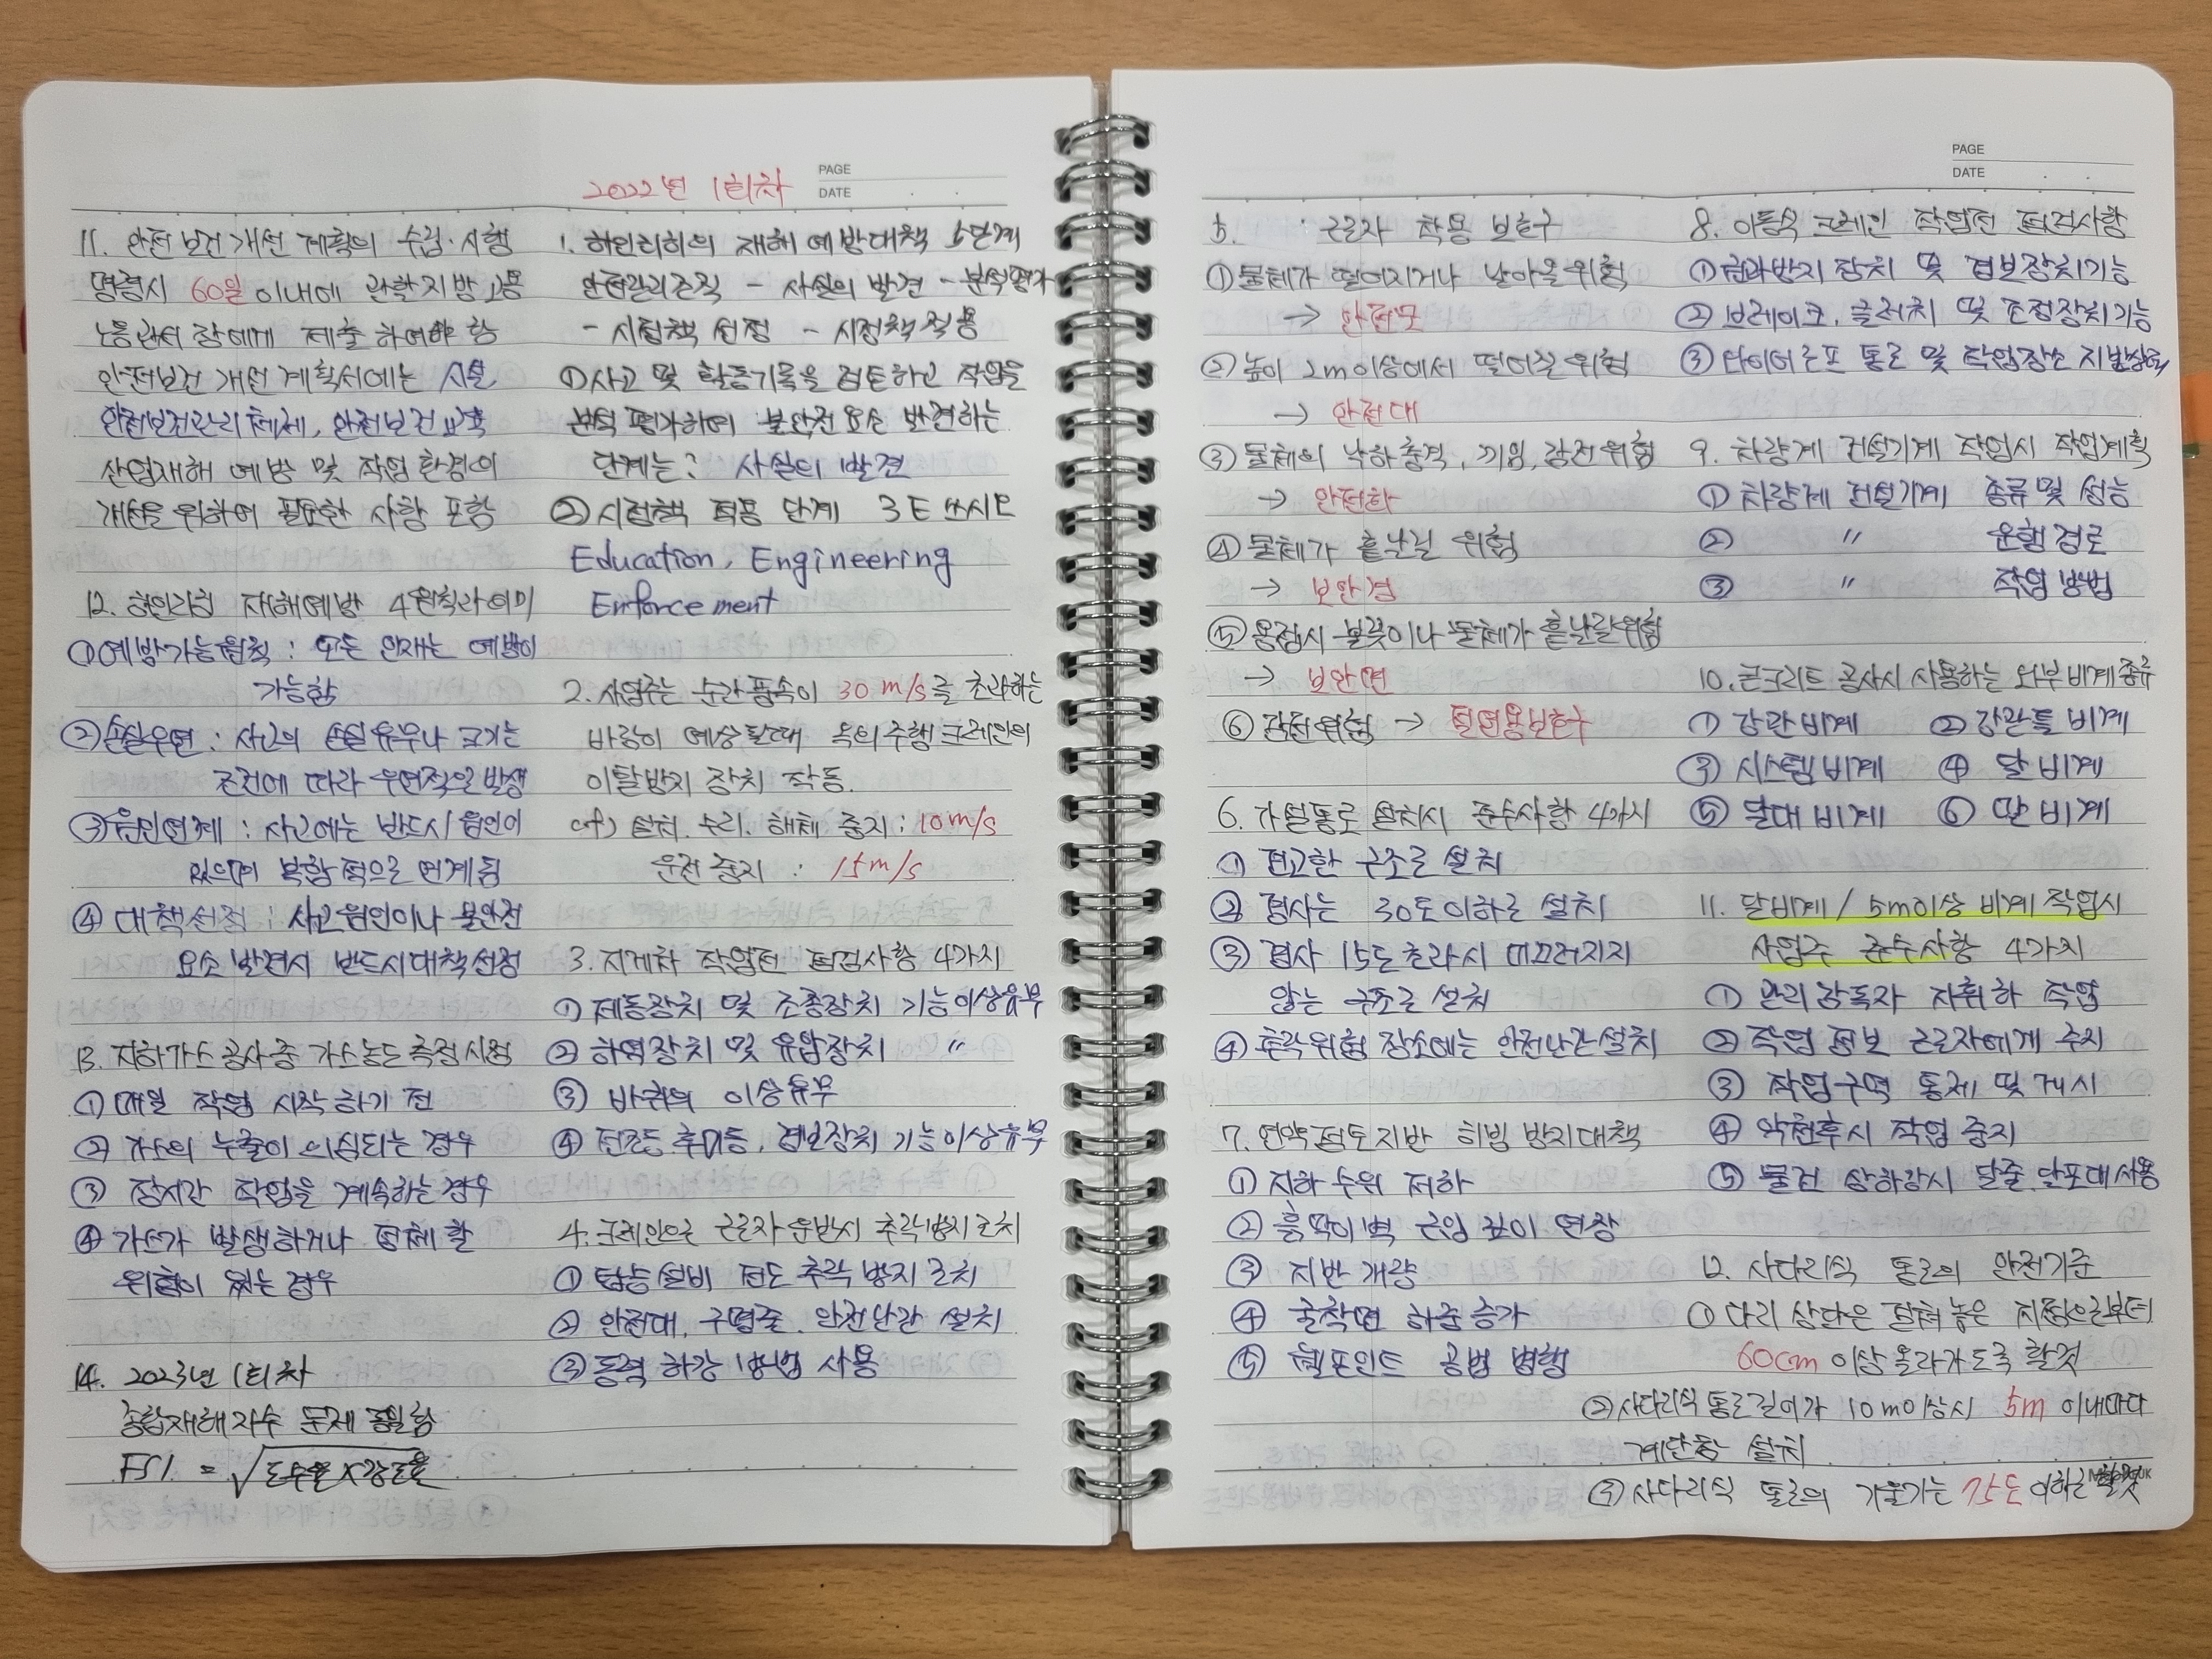 11. 안전보건개선 계획의 수립·시행
명령시 60일 이내에 관할지방고용
노동관서 장에게 제출 하여야 함
안전보건 개선계획서에는 시설
안전보건관리체제, 안전보건교육
산업재해 예방 및 작업환경의
개선을 위하여 필요한 사항 포함
12. 하인리히 재해예방 4원칙과 의미
① 예방가능원칙 : 모든 인재는 예방이
가능함
② 손실우연 : 사고의 손실유무나 크기는
조건에 따라 우연적으로 발생
③ 원인연계 : 사고에는 반드시 원인이
있으며 복합적으로 연계됨
④ 대책선정 : 사고원인이나 불안전
요소 발견시 반드시 대책선정
13. 지하가스 공사중 가스농도 측정시점
① 매일 작업 시작하기 전
② 가스의 누출이 의심되는 경우
③ 장시간 작업을 계속하는 경우
④ 가스가 발생하거나 정체 할
위험이 있는 경우
14. 2023년 1회차
종합재해지수 문제 동일함
FSI = √도수율×강도율
PAGE
DATE
2022년 1회차
1. 하인리히의 재해 예방대책 5단계
안전관리조직 - 사실의 발견 - 분석평가
- 시정책 선정 - 시정책 적용
① 사고 및 활동기록을 검토하고 작업을
분석 평가하여 불안전 요소 발견하는
단계는? 사실의 발견
② 시정책 적용 단계 3E 쓰시오
Education, Engineering
Enforcement
2. 사업주는 순간풍속이 30 m/s를 초과하는
바람이 예상 될때 옥외주행크레인의
이탈방지 장치 작동.
cf) 설치. 수리. 해체 중지 : 10m/s
운전 중지 : 15m/s
3. 지게차 작업전 점검사항 4가지
① 제동장치 및 조종장치 기능이상유무
② 하역장치 및 유압장치 〃
③ 바퀴의 이상유무
④ 전조등 후미등, 경보장치 기능이상유무
4. 크레인으로 근로자 운반시 추락방지조치
① 탑승설비 전도 추락 방지 조치
② 안전대, 구명줄. 안전난간 설치
③ 동력 하강 방법 사용
PAGE
DATE
5. 근로자 착용 보호구
① 물체가 떨어지거나 날아올 위험
→ 안전모
② 높이 2m이상에서 떨어질 위험
→ 안전대
③ 물체의 낙하충격, 끼임, 감전위험
→ 안전화
④ 물체가 흩날릴 위험
→ 보안경
⑤ 용접시 불꽃이나 물체가 흩날릴위험
→ 보안면
⑥ 감전위험 → 절연용보호구
6. 가설통로 설치시 준수사항 4가지
① 견고한 구조로 설치
② 경사는 30도이하로 설치
③ 경사 15도 초과시 미끄러지지
않는 구조로 설치
④ 추락위험 장소에는 안전난간 설치
7. 연약점토지반 히빙 방지대책
① 지하 수위 저하
② 흙막이벽 근입 깊이 연장
③ 지반개량
④ 굴착면 하중증가
⑤ 웰포인트 공법 병행
8. 이동식 크레인 작업전 점검사항
① 권과방지 장치 및 경보장치기능
② 브레이크, 클러치 및 조정장치기능
③ 와이어로프 통로 및 작업장소 지반상태
9. 차량계 건설기계 작업시 작업계획
① 차량계 건설기계 종류 및 성능
② 〃 운행경로
③ 〃 작업방법
10. 콘크리트 공사시 사용하는 외부비계종류
① 강관비계 ② 강관틀 비계
③ 시스템비계 ④ 달비계
⑤ 달대비계 ⑥ 말비계
11. 달비계 / 5m이상 비계 작업시
사업주 준수사항 4가지
① 관리감독자 지휘하 작업
② 작업 정보 근로자에게 주지
③ 작업구역 통제 및 게시
④ 악천후시 작업 중지
⑤ 물건 상하강시 달줄, 달포대사용
12. 사다리식 통로의 안전기준
① 다리 상단은 걸쳐놓은 지점으로부터
60cm 이상 올라가도록 할것
② 사다리식 통로길이가 10m이상시 5m 이내마다
계단참 설치
③ 사다리식 통로의 기울기는 75도 이하로 할것